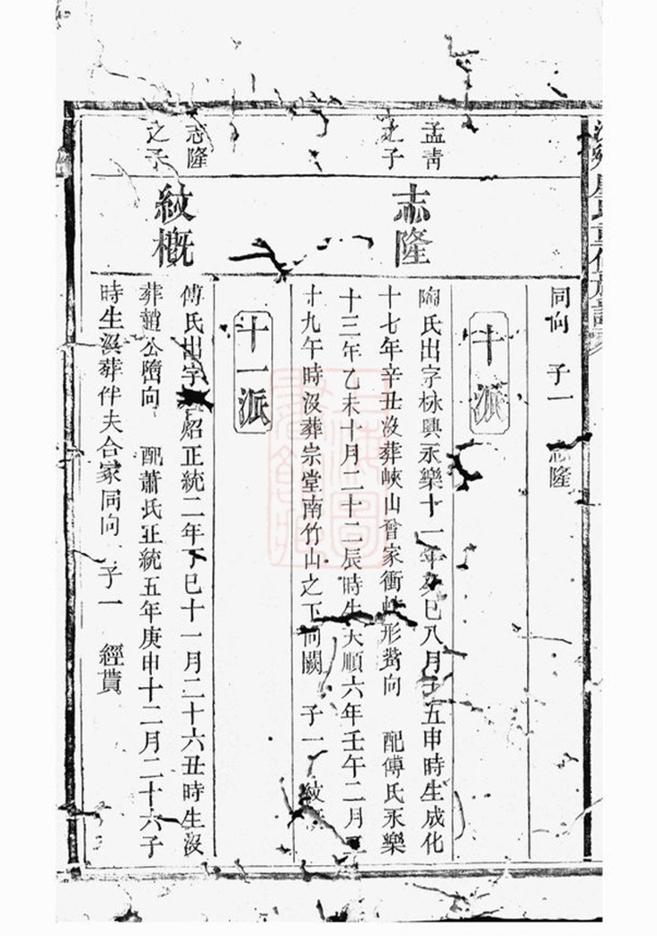 同向 子一 志隆
十派
孟青
之子
志隆
陶氏出字 興永樂十一年癸巳八月十五申時生成化
十七年辛丑沒葬峽山曾家衝 形 向 配傅氏永樂
十三年乙未十月二十二辰時生天順六年壬午二月
十九午時沒葬宗堂南竹山之下向闕 子一 紋
十一派
志隆
之子
紋概
傅氏出字 炤正統二年丁巳十一月二十六丑時生沒
葬趙公 向 配蕭氏正統五年庚申十二月二十六子
時生沒葬伴夫合冢同向 子一 經